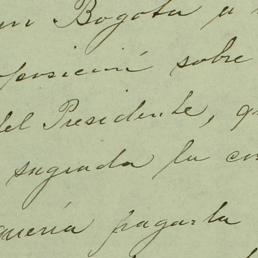 en Bogota a
posición sobre
del Presidente, q
sagrada la co
quería pagarla